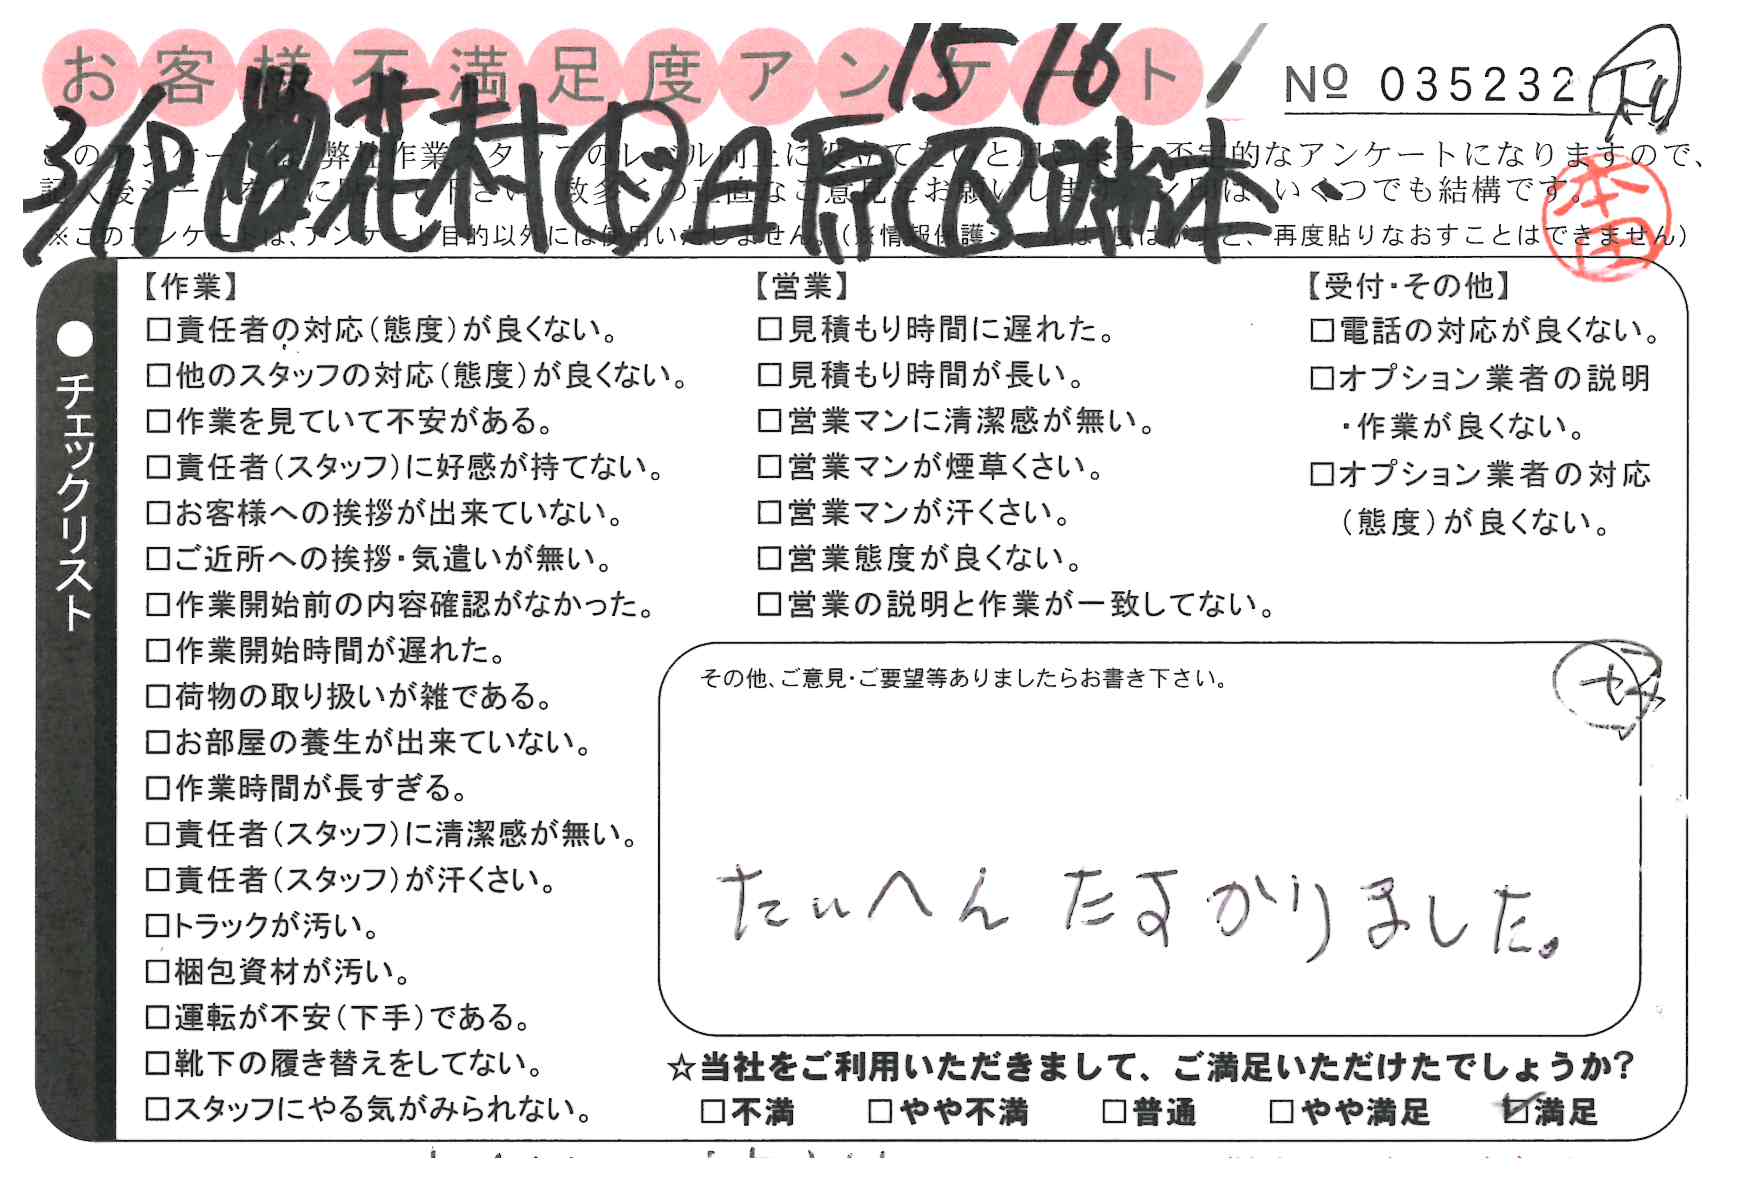 お客様不満足度アンケート
15 16
Nº 035232
3/18
花村 下 日原 下 瑞本
このアンケートは、弊社作業スタッフのレベル向上に役立てたいと思います。不定的なアンケートになりますので、
記入後シールを上に貼って下さい。数多くの正直なご意見をお願いします。いくつでも結構です。
※このアンケートは、アンケート目的以外には使用いたしません。(※情報保護シールは1度はがすと、再度貼りなおすことはできません)
本田
●チェックリスト
【作業】
□責任者の対応(態度)が良くない。
□他のスタッフの対応(態度)が良くない。
□作業を見ていて不安がある。
□責任者(スタッフ)に好感が持てない。
□お客様への挨拶が出来ていない。
□ご近所への挨拶・気遣いが無い。
□作業開始前の内容確認がなかった。
□作業開始時間が遅れた。
□荷物の取り扱いが雑である。
□お部屋の養生が出来ていない。
□作業時間が長すぎる。
□責任者(スタッフ)に清潔感が無い。
□責任者(スタッフ)が汗くさい。
□トラックが汚い。
□梱包資材が汚い。
□運転が不安(下手)である。
□靴下の履き替えをしてない。
□スタッフにやる気がみられない。
【営業】
□見積もり時間に遅れた。
□見積もり時間が長い。
□営業マンに清潔感が無い。
□営業マンが煙草くさい。
□営業マンが汗くさい。
□営業態度が良くない。
□営業の説明と作業が一致してない。
【受付・その他】
□電話の対応が良くない。
□オプション業者の説明
・作業が良くない。
□オプション業者の対応
(態度)が良くない。
その他、ご意見・ご要望等ありましたらお書き下さい。
たいへん たすかりました。
☆当社をご利用いただきまして、ご満足いただけたでしょうか?
□不満 □やや不満 □普通 □やや満足 ☑満足